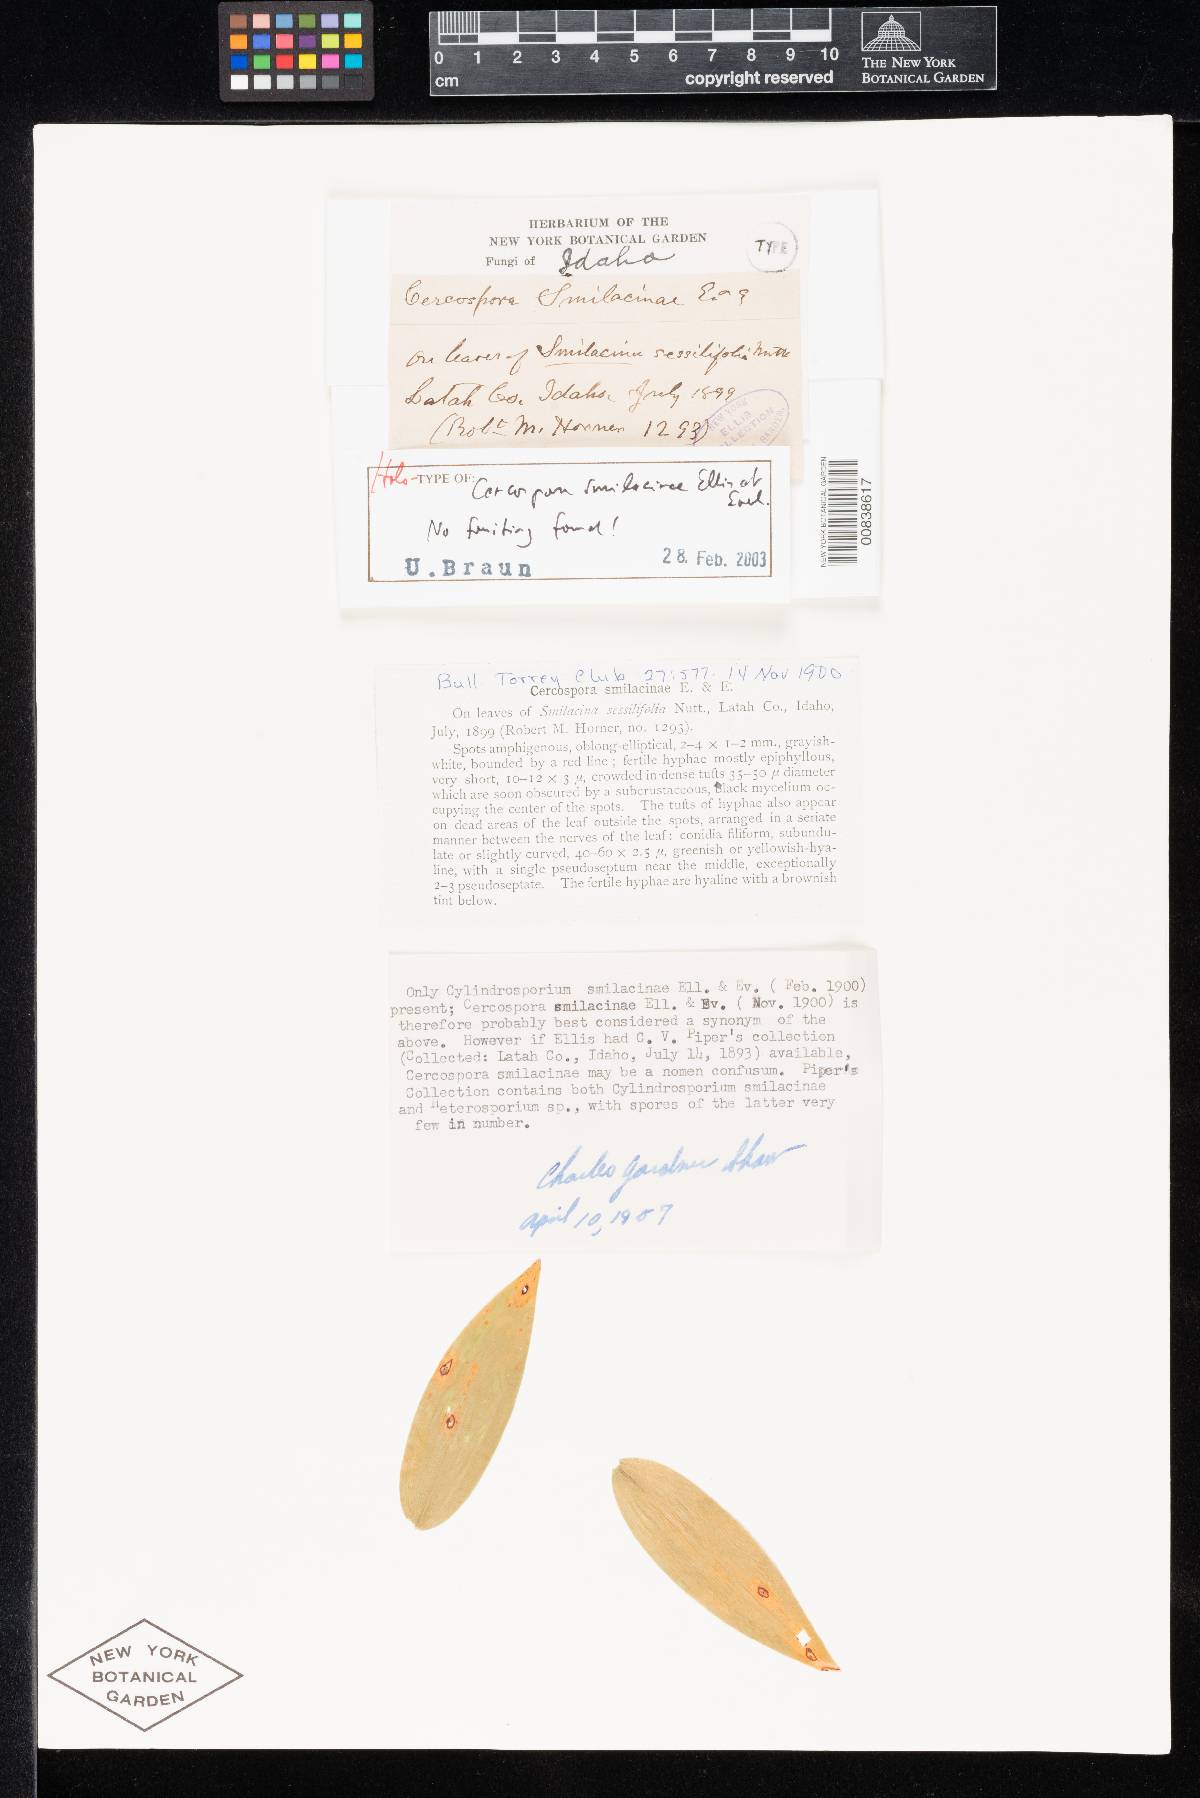 0 1 2 3 4 5 6 7 8 9 10
cm
copyright reserved
THE NEW YORK
BOTANICAL GARDEN
HERBARIUM OF THE
NEW YORK BOTANICAL GARDEN
Fungi of Idaho
TYPE
Cercospora Smilacinae E. & E
On leaves of Smilacina sessilifolia Nutt
Latah Co. Idaho. July 1899
(Robt M. Horner 1293)
NEW YORK
ELLIS
COLLECTION
Holo-TYPE OF: Cercospora smilacinae Ellis et
Everh.
No fruiting found!
U. Braun 28. Feb. 2003
NEW YORK BOTANICAL GARDEN
00838617
Bull Torrey Club 27:577. 14 Nov 1900
Cercospora smilacinae E. & E.
On leaves of Smilacina sessilifolia Nutt., Latah Co., Idaho,
July, 1899 (Robert M. Horner, no. 1293).
Spots amphigenous, oblong-elliptical, 2-4 × 1-2 mm., grayish-
white, bounded by a red line; fertile hyphae mostly epiphyllous,
very short, 10-12 × 3 μ, crowded in dense tufts 35-50 μ diameter
which are soon obscured by a subcrustaceous, black mycelium oc-
cupying the center of the spots. The tufts of hyphae also appear
on dead areas of the leaf outside the spots, arranged in a seriate
manner between the nerves of the leaf: conidia filiform, subundu-
late or slightly curved, 40-60 × 2.5 μ, greenish or yellowish-hya-
line, with a single pseudoseptum near the middle, exceptionally
2-3 pseudoseptate. The fertile hyphae are hyaline with a brownish
tint below.
Only Cylindrosporium smilacinae Ell. & Ev. ( Feb. 1900)
present; Cercospora smilacinae Ell. & Ev. ( Nov. 1900) is
therefore probably best considered a synonym of the
above. However if Ellis had C. V. Piper's collection
(Collected: Latah Co., Idaho, July 14, 1893) available,
Cercospora smilacinae may be a nomen confusum. Piper's
Collection contains both Cylindrosporium smilacinae
and Heterosporium sp., with spores of the latter very
few in number.
Charles Gardner Shaw
April 10, 1957
NEW YORK
BOTANICAL
GARDEN